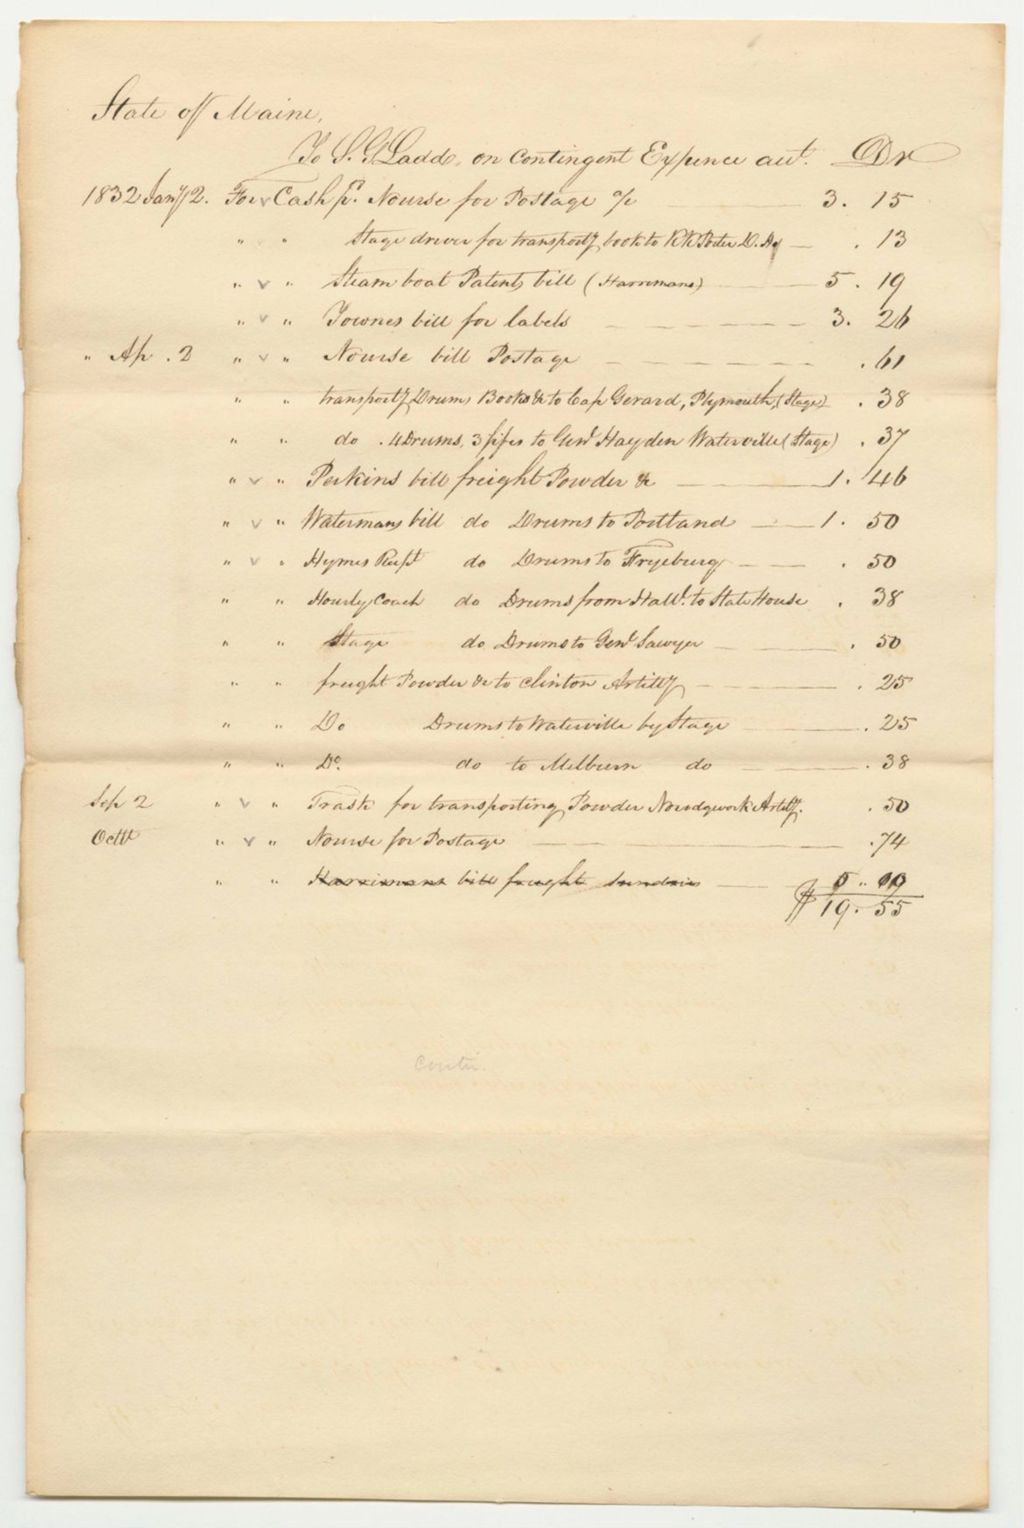 State of Maine,
To S. G. Ladd, on Contingent Expence acct. Dr
1832 Jany 2. For Cash pd. Nourse for Postage a/c 3. 15
" " Stage driver for transportg book to Porter .13
" " Steam boat Patents bill (Harrimans) 5. 19
" " Townes bill for labels 3. 26
" Ap. 2 " " Nourse bill Postage .61
" " transportg Drums Books &c to Cap Gerard, Plymouth, (Stage) .38
" " do . 4 Drums, 3 fifes to Genl Hayden Waterville (Stage) .37
" " Perkins bill freight Powder &c 1. 46
" " Watermans bill do Drums to Portland 1. 50
" " Hymes Rect do Drums to Fryeburg .50
" " Hourly Coach do Drums from Hall. to State House .38
" " Stage do Drums to Genl Sawyer .50
" " freight Powder &c to Clinton Artilly .25
" " Do Drums to Waterville by Stage .25
" " Do. do to Milburn do .38
Sep 2 " " Trask for transporting Powder Norridgwork Artilly. .50
Octr " " Nourse for Postage .74
" " Harrimans bill freight Sundries 0 " 00
$19. 55
Contin.